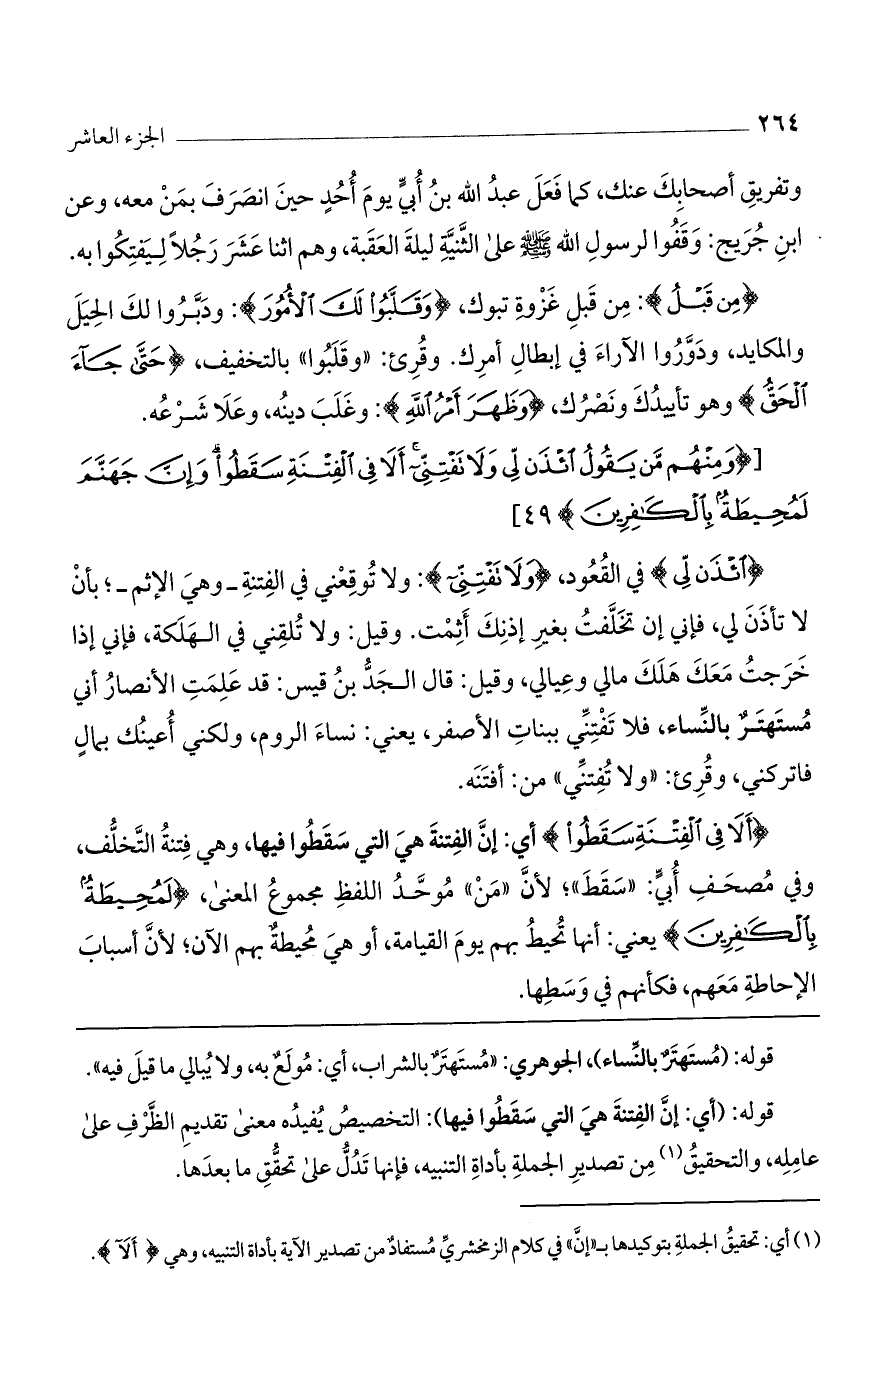 ٢٦٤ الجزء العاشر
وتفريقِ أصحابِكَ عنك، كما فَعَلَ عبدُ الله بنُ أُبيٍّ يومَ أُحُدٍ حينَ انصَرَفَ بمَنْ معه، وعن
ابنِ جُرَيج: وَقَفُوا لرسولِ الله ﷺ على الثَّنيَّةِ ليلةَ العَقَبة، وهم اثنا عَشَرَ رَجُلاً لِيَفتِكُوا به.
﴿مِن قَبْلُ﴾: مِن قَبلِ غَزْوةِ تبوك، ﴿وَقَلَّبُوا۟ لَكَ ٱلْأُمُورَ﴾: ودَبَّرُوا لكَ الحِيَلَ
والمكايد، ودَوَّرُوا الآراءَ في إبطالِ أمرِك. وقُرِئ: «وقَلَبُوا» بالتخفيف، ﴿حَتَّىٰ جَآءَ
ٱلْحَقُّ﴾ وهو تأييدُكَ ونَصْرُك، ﴿وَظَهَرَ أَمْرُ ٱللَّهِ﴾: وغَلَبَ دينُه، وعَلَا شَرْعُه.
[﴿وَمِنْهُم مَّن يَقُولُ ٱئْذَن لِّى وَلَا نَفْتِنِّىٓ ۚ أَلَا فِى ٱلْفِتْنَةِ سَقَطُوا۟ ۗ وَإِنَّ جَهَنَّمَ
لَمُحِيطَةٌۢ بِٱلْكَـٰفِرِينَ﴾ ٤٩]
﴿ٱئْذَن لِّى﴾ في القُعُود، ﴿وَلَا نَفْتِنِّىٓ﴾: ولا تُوقِعْني في الفِتنةِ ـ وهيَ الإثم ـ؛ بأنْ
لا تأذَنَ لي، فإني إن تَخَلَّفتُ بغيرِ إذنِكَ أَثِمْت. وقيل: ولا تُلقِني في الهَلَكة، فإني إذا
خَرَجتُ مَعَكَ هَلَكَ مالي وعِيالي، وقيل: قال الجَدُّ بنُ قيس: قد عَلِمَتِ الأنصارُ أني
مُستَهتَرٌ بالنِّساء، فلا تَفْتِنِّي ببناتِ الأصفر، يعني: نساءَ الروم، ولكني أُعينُك بمالٍ
فاتركني، وقُرِئ: «ولا تُفتِنِّي» من: أفتَنَه.
﴿أَلَا فِى ٱلْفِتْنَةِ سَقَطُوا۟﴾ أي: إنَّ الفِتنةَ هيَ التي سَقَطُوا فيها، وهي فِتنةُ التَّخلُّف،
وفي مُصحَفِ أُبيٍّ: «سَقَطَ»؛ لأنَّ «مَنْ» مُوحَّدُ اللفظِ مجموعُ المعنىٰ، ﴿لَمُحِيطَةٌۢ
بِٱلْكَـٰفِرِينَ﴾ يعني: أنها تُحيطُ بهم يومَ القيامة، أو هيَ مُحيطةٌ بهم الآن؛ لأنَّ أسبابَ
الإحاطةِ مَعَهم، فكأنهم في وَسَطِها.
قوله: (مُستَهتَرٌ بالنِّساء)، الجوهري: «مُستَهتَرٌ بالشراب، أي: مُولَعٌ به، ولا يُبالي ما قيلَ فيه».
قوله: (أي: إنَّ الفِتنةَ هيَ التي سَقَطُوا فيها): التخصيصُ يُفيدُه معنىٰ تقديمِ الظَّرْفِ علىٰ
عامِلِه، والتحقيقُ(١) مِن تصديرِ الجملةِ بأداةِ التنبيه، فإنها تَدُلُّ علىٰ تحقُّقِ ما بعدَها.
(١) أي: تحقيقُ الجملةِ بتوكيدها بـ«إنَّ» في كلام الزمخشريِّ مُستفادٌ من تصدير الآية بأداة التنبيه، وهي ﴿أَلَآ﴾.